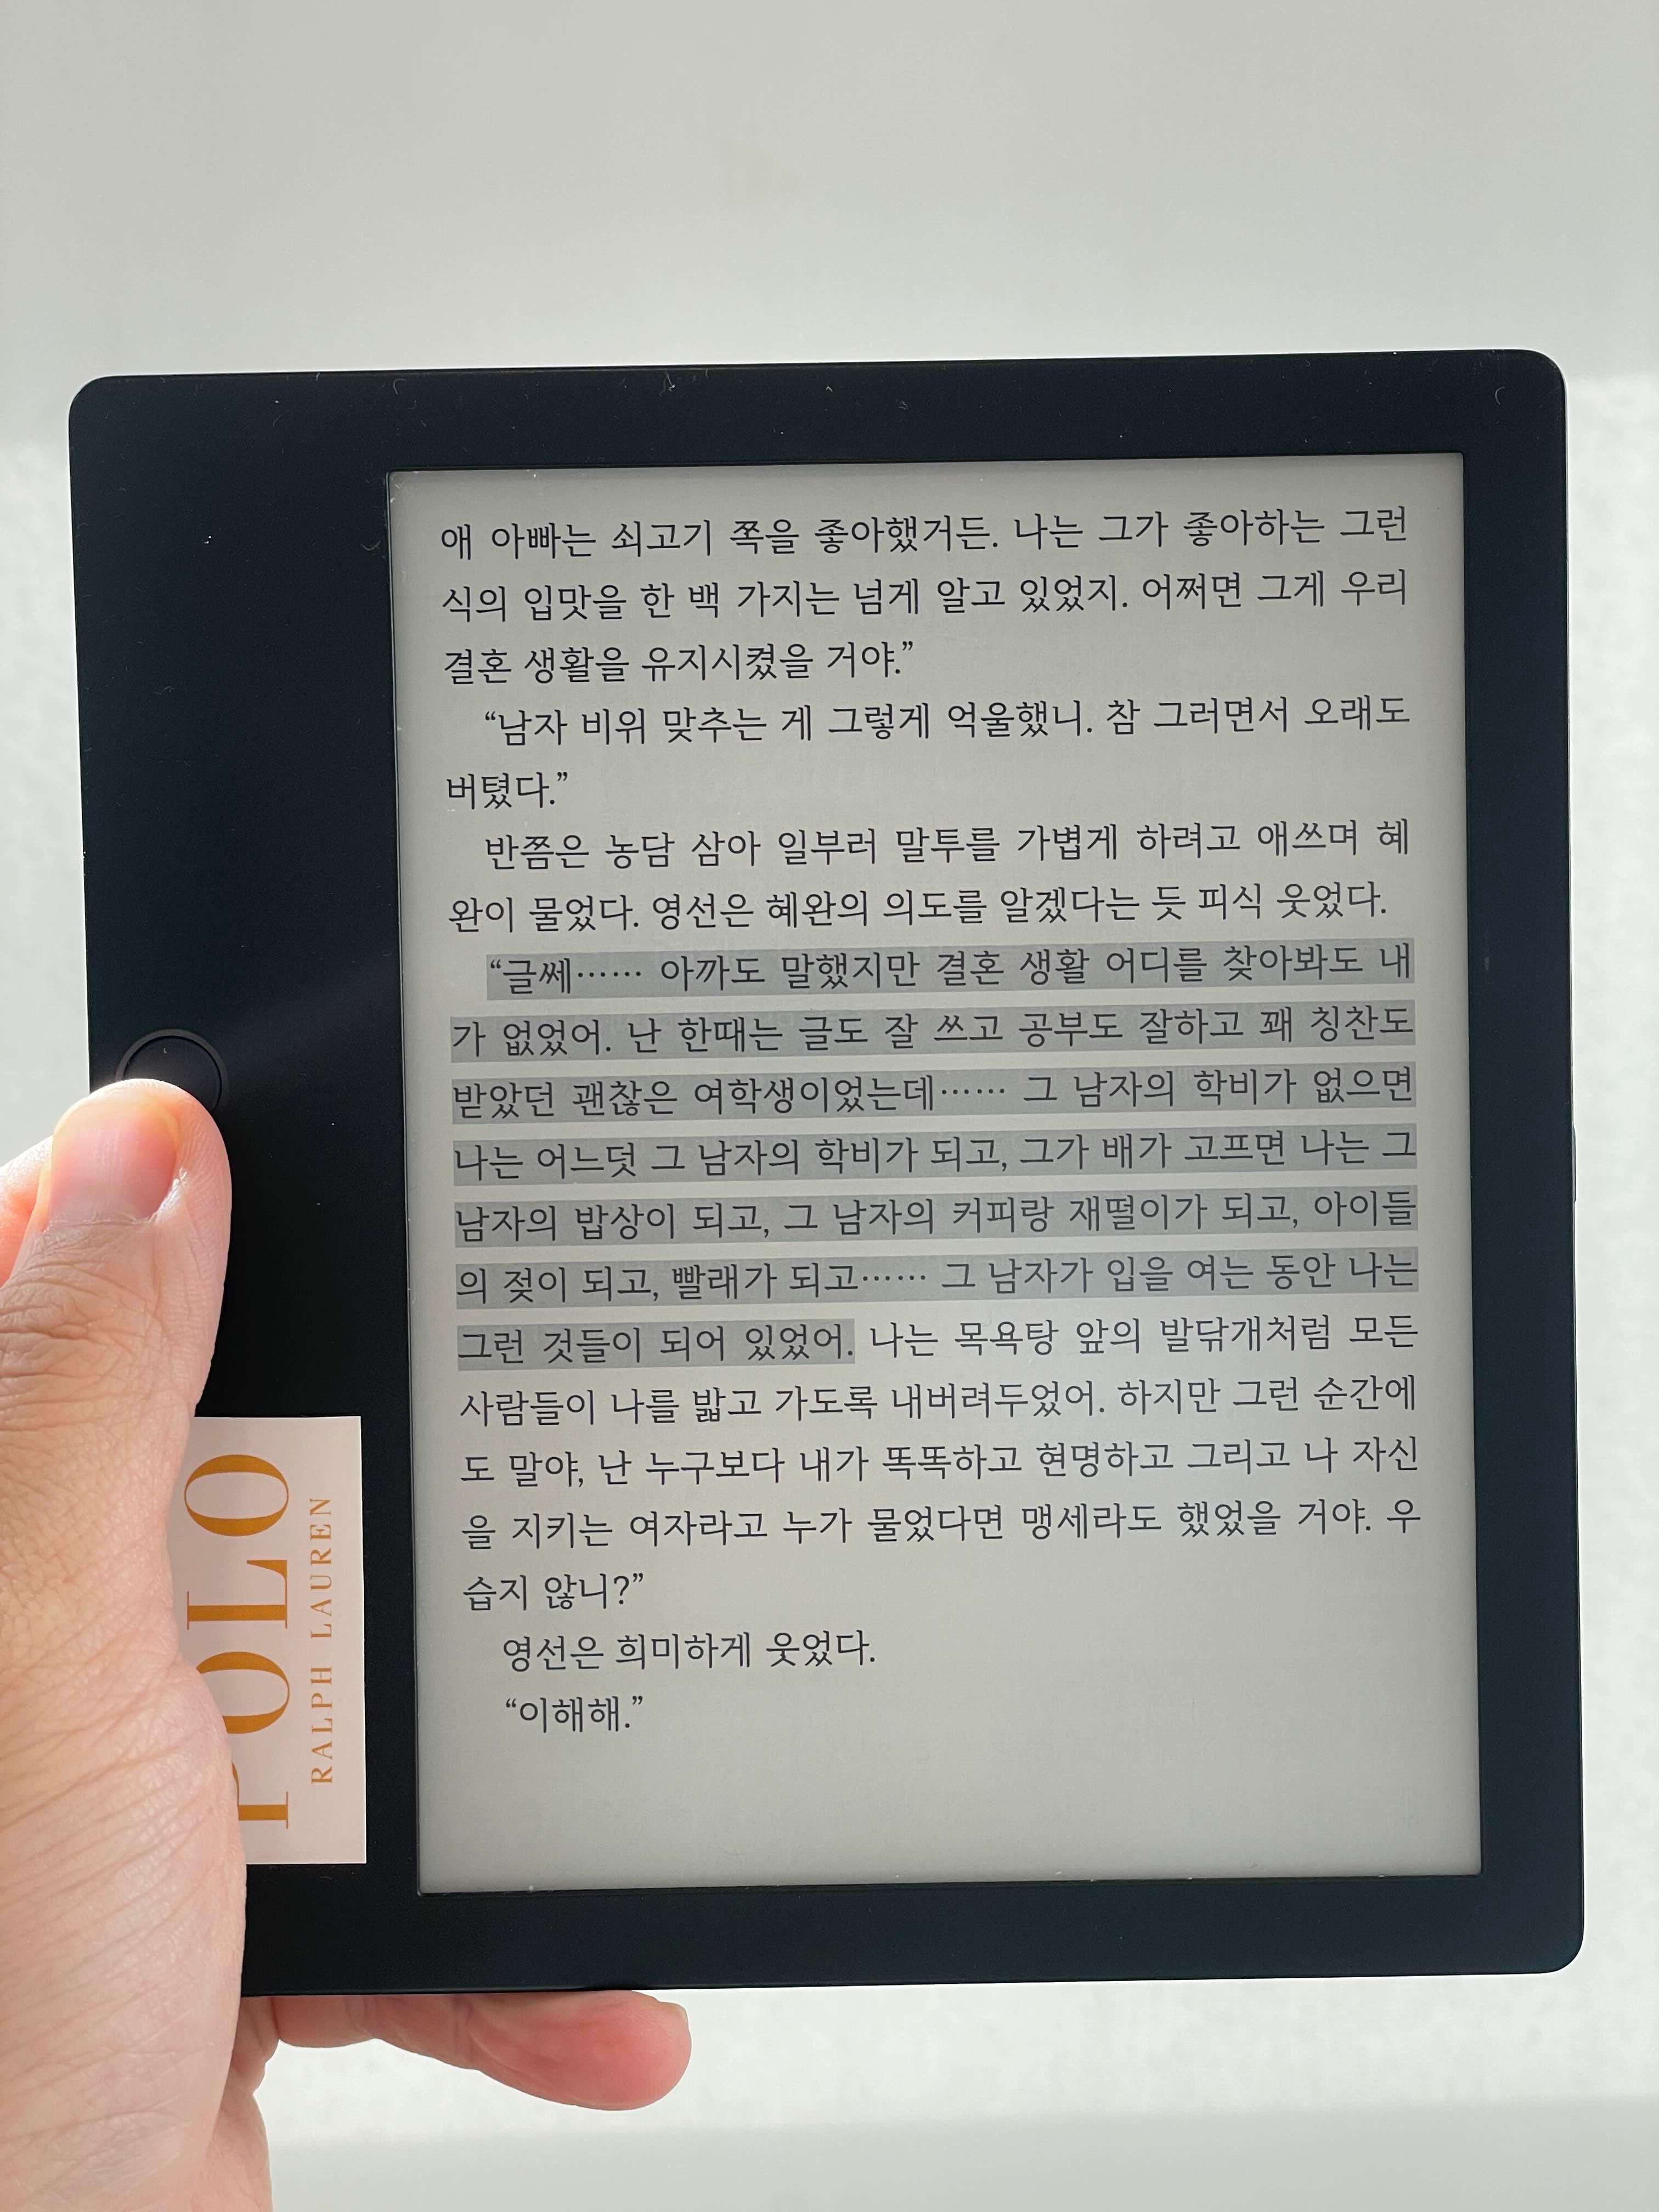 애 아빠는 쇠고기 쪽을 좋아했거든. 나는 그가 좋아하는 그런
식의 입맛을 한 백 가지는 넘게 알고 있었지. 어쩌면 그게 우리
결혼 생활을 유지시켰을 거야.”
“남자 비위 맞추는 게 그렇게 억울했니. 참 그러면서 오래도
버텼다.”
반쯤은 농담 삼아 일부러 말투를 가볍게 하려고 애쓰며 혜
완이 물었다. 영선은 혜완의 의도를 알겠다는 듯 피식 웃었다.
“글쎄…… 아까도 말했지만 결혼 생활 어디를 찾아봐도 내
가 없었어. 난 한때는 글도 잘 쓰고 공부도 잘하고 꽤 칭찬도
받았던 괜찮은 여학생이었는데…… 그 남자의 학비가 없으면
나는 어느덧 그 남자의 학비가 되고, 그가 배가 고프면 나는 그
남자의 밥상이 되고, 그 남자의 커피랑 재떨이가 되고, 아이들
의 젖이 되고, 빨래가 되고…… 그 남자가 입을 여는 동안 나는
그런 것들이 되어 있었어. 나는 목욕탕 앞의 발닦개처럼 모든
사람들이 나를 밟고 가도록 내버려두었어. 하지만 그런 순간에
도 말야, 난 누구보다 내가 똑똑하고 현명하고 그리고 나 자신
을 지키는 여자라고 누가 물었다면 맹세라도 했었을 거야. 우
습지 않니?”
영선은 희미하게 웃었다.
“이해해.”
POLO
RALPH LAUREN